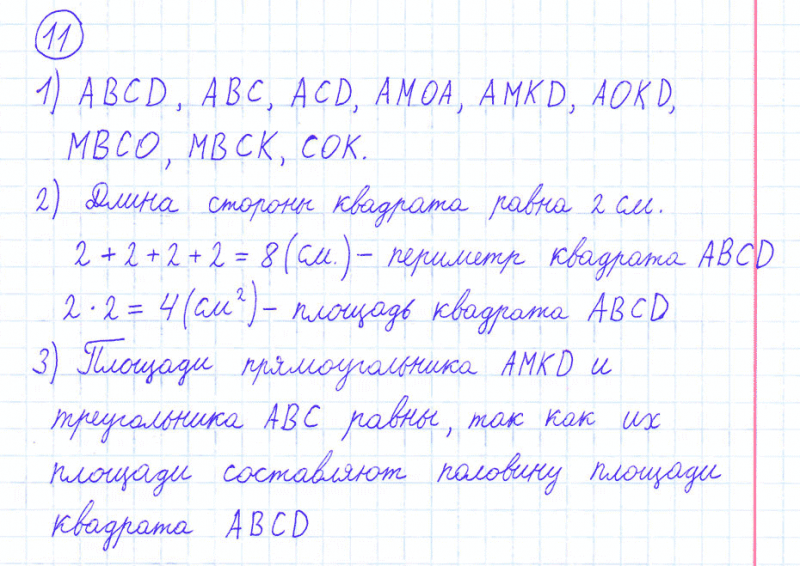 11
1) ABCD, ABC, ACD, AMOA, AMKD, AOKD,
MBCO, MBCK, COK.
2) Длина стороны квадрата равна 2 см.
2 + 2 + 2 + 2 = 8 (см.) – периметр квадрата ABCD
2 · 2 = 4 (см²) – площадь квадрата ABCD
3) Площади прямоугольника AMKD и
треугольника ABC равны, так как их
площади составляют половину площади
квадрата ABCD